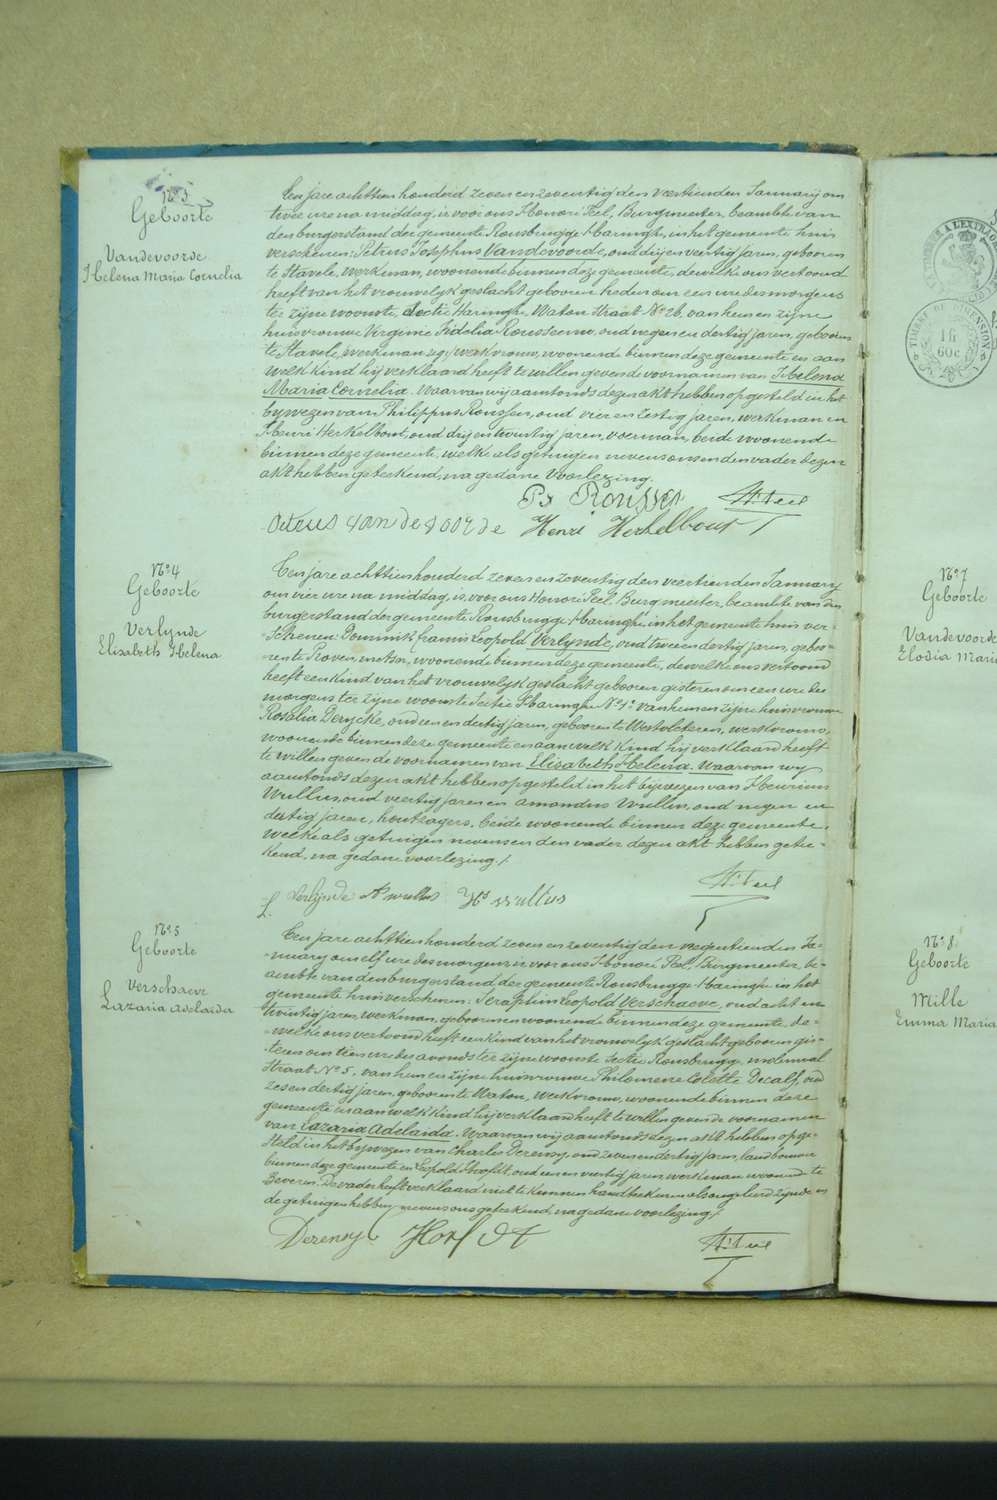 N° 3
Geboorte
Vandevoorde
Helena Maria Cornelia
Een jare achttien honderd zeven en zeventig den veertienden January om
twee ure na middag, is voor ons Honoré Peel, Burgmeester, beambte van
den burgerstand der gemeente Rousbrugge Haringhe, in het gemeente huis
verschenen: Petrus Josephus Vandevoorde, oud dry en veertig jaren, geboren
te Stavele, werkman, woonende binnen deze gemeente, dewelke ons vertoond
heeft van het vrouwelyk geslacht gebooren heden om een ure des morgens
ter zyne woonste, Sectie Haringhe, Waton Straat N° 26, van hem en zyne
huisvrouwe Virginie Fidelia Rousseeuw, oud negen en dertig jaren, geboren
te Stavele, werkvrouw, woonende binnen deze gemeente en aan
welk kind hy verklaard heeft te willen geven de voornamen van Helena
Maria Cornelia. Waarvan wy aanstonds dezen akt hebben opgesteld in het
bywezen van Philippus Roussen, oud vier en sestig jaren, werkman en
Henri Herkelbout, oud dry en twintig jaren, voerman, beide woonende
binnen deze gemeente, welke als getuigen nevens ons en den vader dezen
akt hebben geteekend, na gedane voorlezing.
Ps Roussen H. Peel
van de voorde Henri Herkelbout
N° 4
Geboorte
Verlynde
Elisabeth Helena
Een jare achttien honderd zeven en zeventig den veertienden January
om vier ure na middag, is voor ons Honoré Peel, Burgmeester, beambte van den
burgerstand der gemeente Rousbrugge Haringhe in het gemeente huis ver-
schenen: Dominik Leopold Verlynde, oud twee en dertig jaren, geboo-
ren te Proven, metser, woonende binnen deze gemeente, dewelke ons vertoond
heeft een kind van het vrouwelyk geslacht gebooren gisteren om een ure des
morgens ter zyne woonste Sectie Haringhe N° van hem en zyne huisvrouwe
Rosalia Derycke, oud een en dertig jaren, geboren te Westvleteren, werkvrouw,
woonende binnen deze gemeente en aan welk kind hy verklaard heeft
te willen geven de voornamen van Elisabeth Helena. Waarvan wy
aanstonds dezen akt hebben opgesteld in het bijwezen van Henricus
Wullus, oud veertig jaren en Amandus Wullus, oud negen en
dertig jaren, houtzagers, beide woonende binnen deze gemeente,
welke als getuigen nevens en den vader dezen akt hebben getee-
kend, na gedane voorlezing /.
H. Peel
L. Verlynde As wullus Hs wullus
N° 5
Geboorte
Verschaeve
Lazaria Adelaida
Een jare achttien honderd zeven en zeventig den negentienden Ja-
nuary om elf ure des morgens is voor ons Honoré Peel, Burgmeester, be-
ambte van den burgerstand der gemeente Rousbrugge Haringhe in het
gemeente huis verschenen: Seraphin Leopold Verschaeve, oud acht en
twintig jaren, werkman, gebooren en woonende binnen deze gemeente, de-
welke ons vertoond heeft een kind van het vrouwelyk geslacht gebooren gis-
teren om tien ure des avonds ter zyne woonste Sectie Rousbrugge, molenwal
Straat N° 5, van hem en zyne huisvrouwe Philomene Colette Decalf, oud
zes en dertig jaren, geboren te Waton, werkvrouw, woonende binnen deze
gemeente en aan welk kind hy verklaard heeft te willen geven de voornamen
van Lazaria Adelaida. Waarvan wy aanstonds dezen akt hebben opge-
steld in het bijwezen van Charles Derensy, oud zeven en dertig jaren, landbouwer
binnen deze gemeente en Leopold Hooft, oud een en veertig jaren werkman woonende te
Beveren. De vader heeft verklaard niet te kunnen handteekenen als ongeleerd zynde en
de getuigen hebben nevens ons geteekend, na gedane voorlezing /.
Derensy L Hoofdt H. Peel
N° 7
Geboorte
Vandevoorde
Elodia Maria
N° 8
Geboorte
Mille
Emma Maria
TIMBRE DE DIMENSION
1 fl
60c